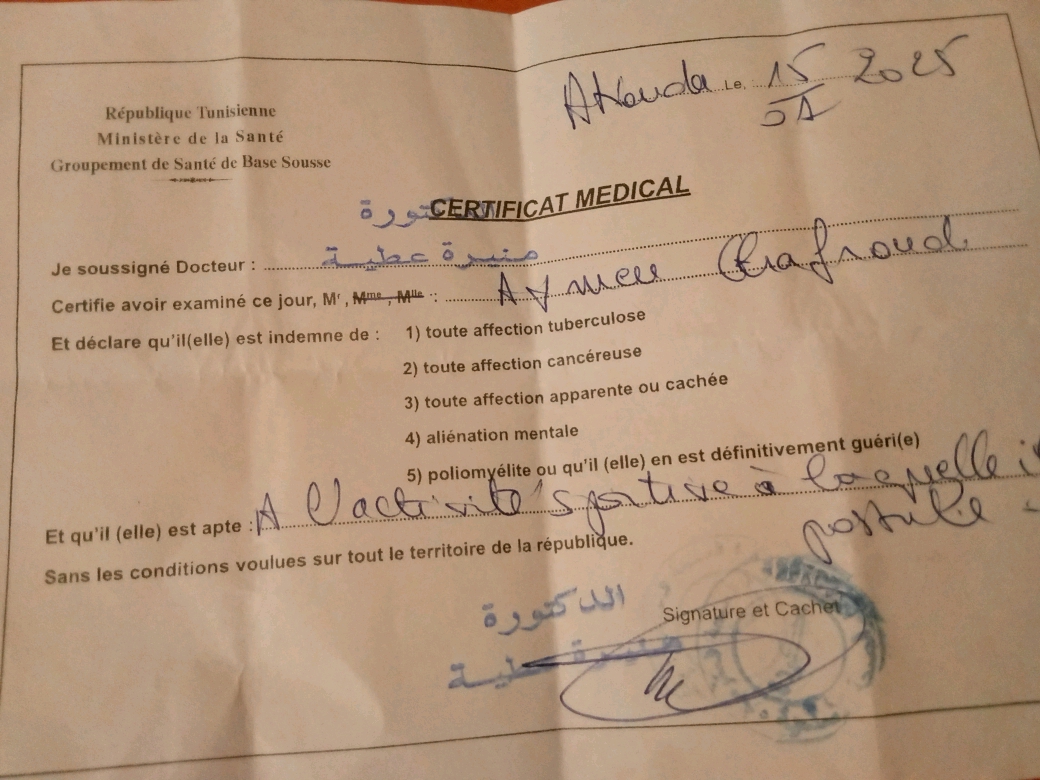 République Tunisienne
Ministère de la Santé
Groupement de Santé de Base Sousse
Akouda Le, 15 2025
01
CERTIFICAT MEDICAL
الدكتورة
Je soussigné Docteur : منيرة عطية
Certifie avoir examiné ce jour, Mr , Mme , Mlle : Aymen Chafroud
Et déclare qu'il(elle) est indemne de : 1) toute affection tuberculose
2) toute affection cancéreuse
3) toute affection apparente ou cachée
4) aliénation mentale
5) poliomyélite ou qu'il (elle) en est définitivement guéri(e)
Et qu'il (elle) est apte : A l'activité sportive à laquelle il
postule
Sans les conditions voulues sur tout le territoire de la république.
الدكتورة
Signature et Cachet
منيرة عطية